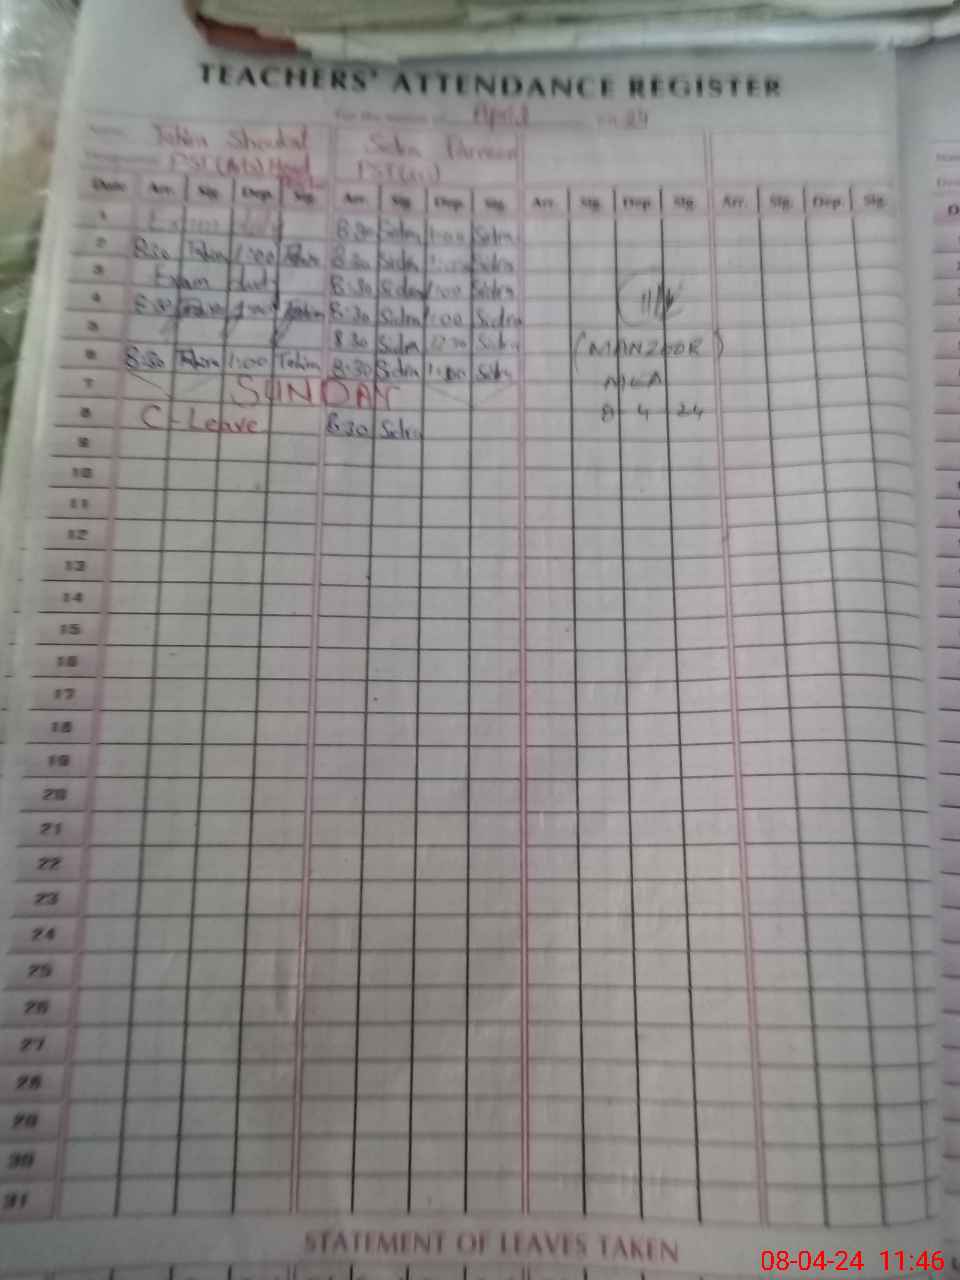 TEACHERS' ATTENDANCE REGISTER
April 24
Tahira Shoukat Sidra Parveen
PST (A/S) Head PST
Date Arr. Sig. Dep. Sig. Arr. Sig. Dep. Sig. Arr. Sig. Dep. Sig. Arr. Sig. Dep. Sig.
1 Exam duty 8:30 Sidra 1:00 Sidra
2 8:30 Tahira 1:00 Tahira 8:30 Sidra 1:00 Sidra
3 Exam duty 8:30 Sidra 1:00 Sidra
4 8:30 Tahira 1:00 Tahira 8:30 Sidra 1:00 Sidra
5 8:30 Sidra 12:30 Sidra (MANZOOR)
6 8:30 Tahira 1:00 Tahira 8:30 Sidra 1:00 Sidra MEA
7 SUNDAY 8-4-24
8 C-Leave 8:30 Sidra
9
10
11
12
13
14
15
16
17
18
19
20
21
22
23
24
25
26
27
28
29
30
31
STATEMENT OF LEAVES TAKEN
08-04-24 11:46